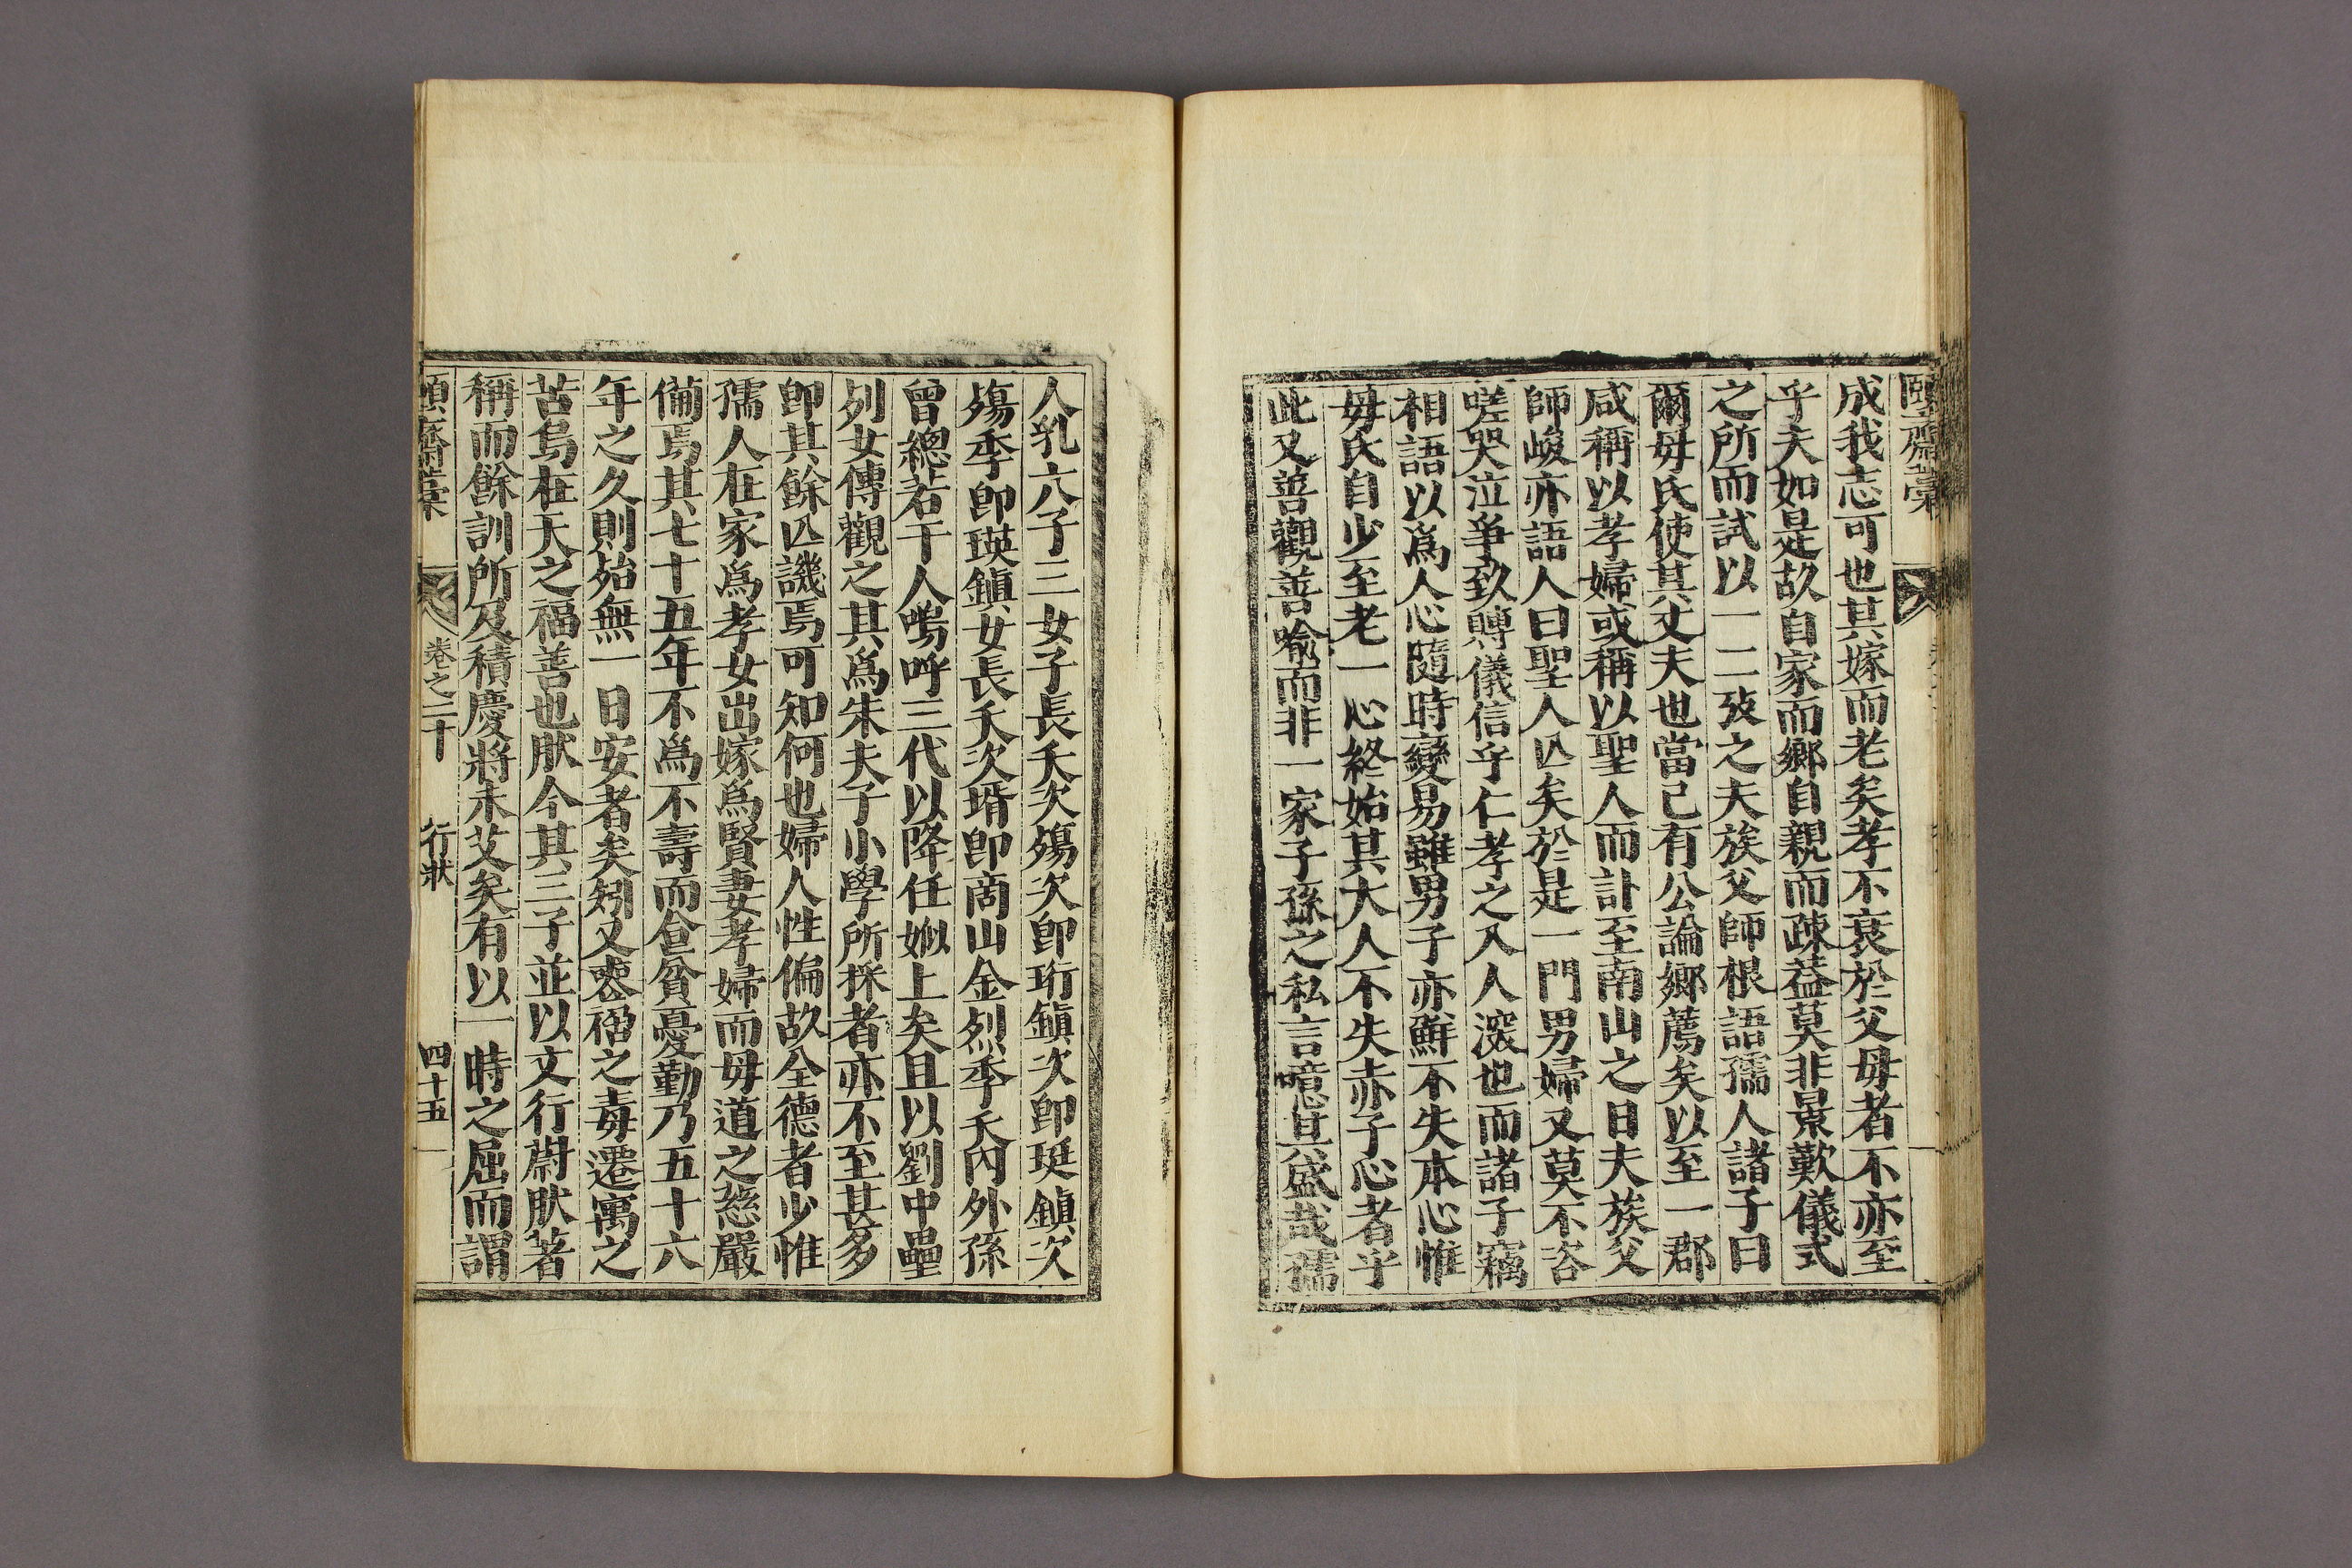 頤齋藁
成我志可也其嫁而老矣孝不衰於父母者不亦至
乎夫如是故自家而鄉自親而疎益莫非景歎儀式
之所而試以一二攷之夫族父師根語孺人諸子曰
爾母氏使其丈夫也當己有公論鄉薦矣以至一郡
咸稱以孝婦或稱以聖人而訃至南山之日夫族父
師峻亦語人曰聖人亾矣於是一門男婦又莫不咨
嗟哭泣爭致賻儀信乎仁孝之入人深也而諸子竊
相語以爲人心隨時變易雖男子亦鮮不失本心惟
母氏自少至老一心終始其大人不失赤子心者乎
此又善觀善喩而非一家子孫之私言噫其盛哉孺
人乳六子三女子長夭次殤次卽珩鎭次卽珽鎭次
殤季卽瑛鎭女長夭次壻卽商山金烈季夭內外孫
曾總若干人嗚呼三代以降任姒上矣且以劉中壘
列女傳觀之其爲朱夫子小學所採者亦不至甚多
卽其餘亾譏焉可知何也婦人性偏故全德者少惟
孺人在家爲孝女出嫁爲賢妻孝婦而母道之慈嚴
備焉其七十五年不爲不壽而食貧憂勤乃五十六
年之久則殆無一日安者矣矧又喪禍之毒遷寓之
苦烏在天之福善也肰今其三子並以文行蔚肰著
稱而餘訓所及積慶將未艾矣有以一時之屈而謂
頤齋藁 卷之二十 行狀 四十五